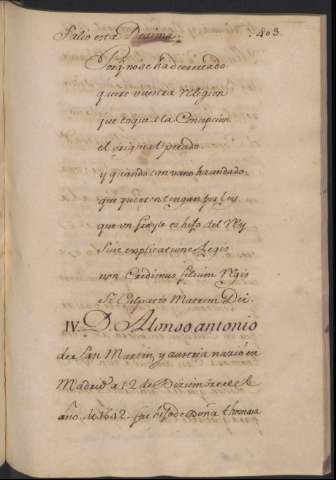 Salio esta Decima. 403
Porq no se ha decretado
quiere vuestra religion
que toque a la Concepcion
el original pecado.
y quando con vano han dado
que quieren tengan por Ley
que un frayle es hijo del Rey
sine explicatione Legis
non Credimus filium Regis
si Culpatis Matrem Dei.
IV. D. Alonso antonio
de San Martin, y austria nacio en
Madrid a 12 de Diciembre de el
año de 1642. fue hijo de Doña thomasa